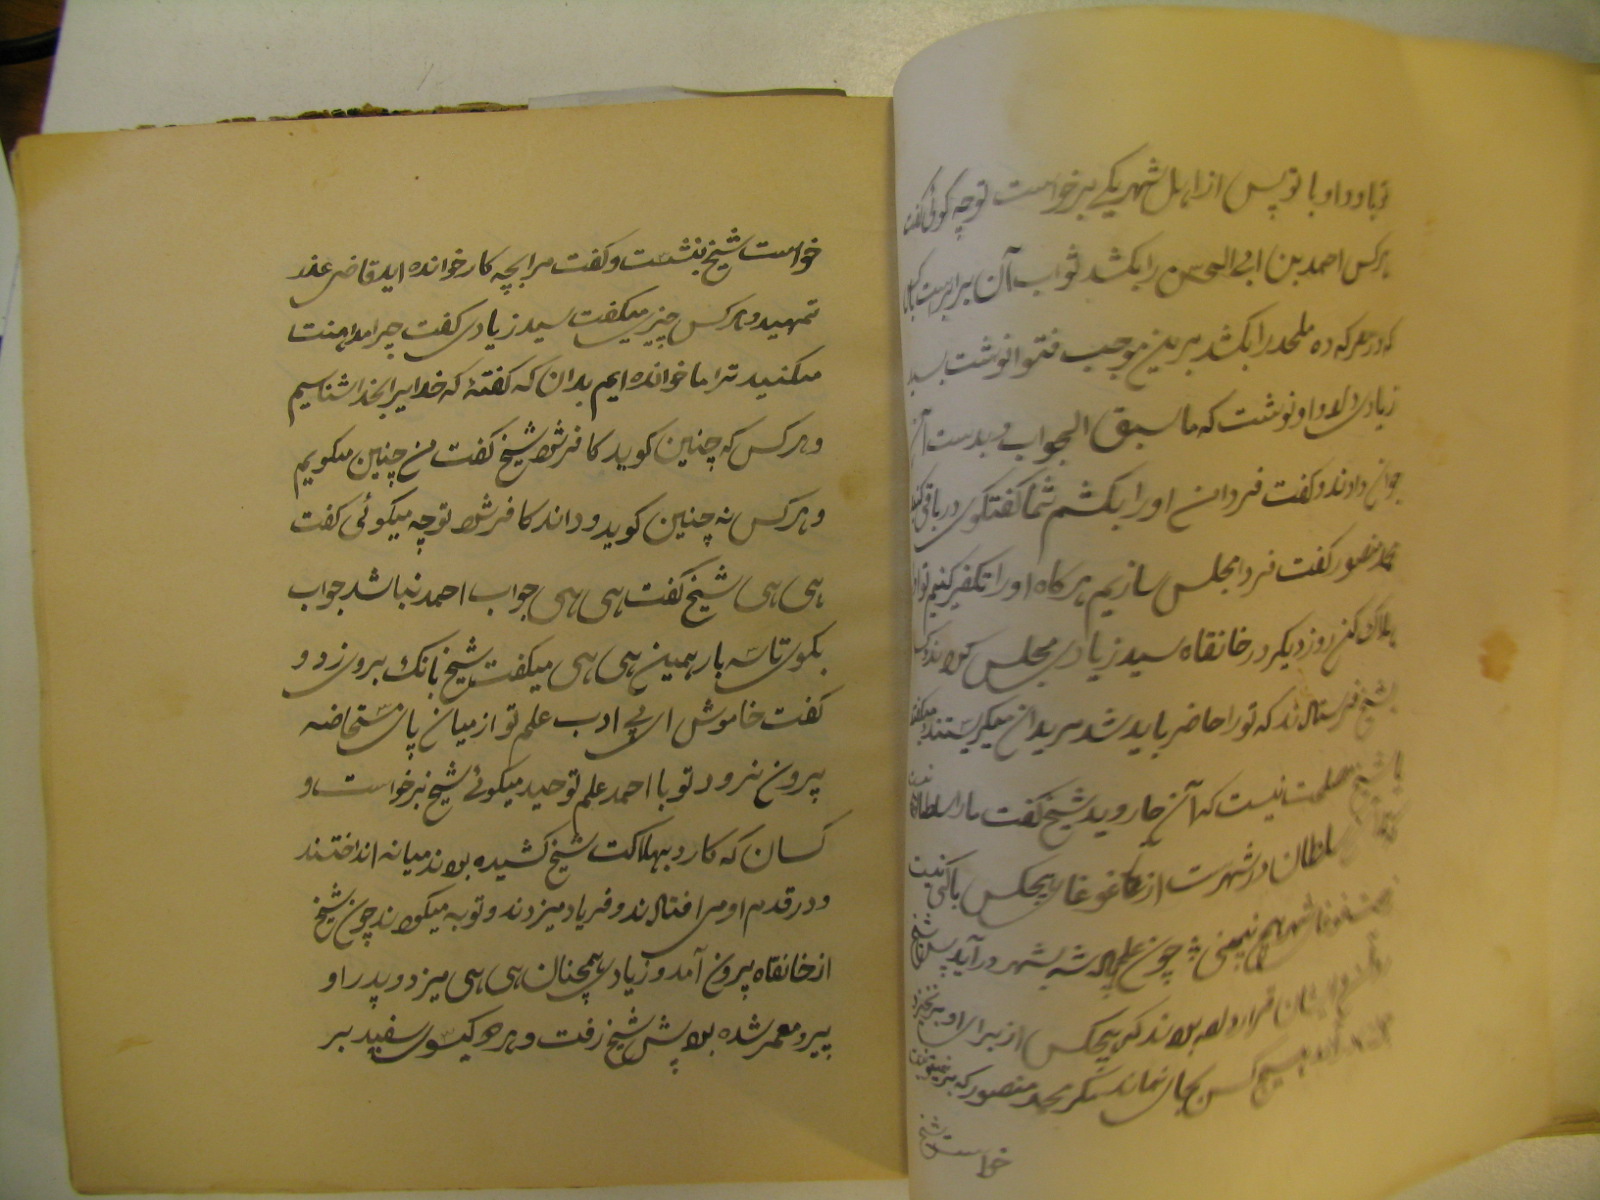 تو باو و او با تو پس از اهل شهر یکے برخواست تو چه کوئی کفت
هرکس احمد بن ابی الحسن را بکشد ثواب آن برابرست
که در معرکه ده ملحد را بکشد برین موجب فتوا نوشت بسید
زیادی داد و او نوشت که ما سبق الجواب و بدست آن
جوان دادند و کفت فردا من او را بکشم شما کفتکوی در باقی کنید
محمد منصور کفت فردا مجلس سازیم هرکاه او را تکفیر کنیم تو او را
هلاک کن روز دیکر در خانقاه سید زیادی مجلس کردند و کس
بشیخ فرستادند که تو را حاضر باید شد مریدان میکریستند و میکفتند
یا شیخ مصلحت نیست که آن جا روید شیخ کفت ما را سلطان
سلطان در شهرست از غوغای هیچکس باکی نیست
غوغا شهر هم چون بشهر درآید پس شیخ
قرار داده بودند که هیچکس از برای او برنخیزد
هیچ کس بجای نماند مکر محمد منصور که بر
خواست شیخ
خواست شیخ بنشست و کفت مرا بچه کار خوانده اید قاضی عذر
تمهید و هرکس چیزی میکفت سید زیادی کفت چرا مداهنت
میکنید ترا ما خوانده ایم بدان که کفتهٔ که خدایرا بخدا شناسیم
و هرکس که چنین کوید کافر شود شیخ کفت من چنین میکویم
و هرکس نه چنین کوید و داند کافر شود تو چه میکوئی کفت
هی هی شیخ کفت هی هی جواب احمد نباشد جواب
بکوی تا سه بار همین هی هی میکفت شیخ بانک بروی زد و
کفت خاموش ای بی ادب علم تو از میان پای مستحاضه
بیرون نرود تو با احمد علم توحید میکوئے شیخ برخواست و
کسان که کارد بهلاکت شیخ کشیده بودند میانه انداختند
و در قدم او می افتادند و فریاد میزدند و توبه میکردند چون شیخ
از خانقاه بیرون آمد و زیادی همچنان هی هی میزد و پدر او
پیر و معمر شده بود پیش شیخ رفت و هر دو کیسوی سفید بر